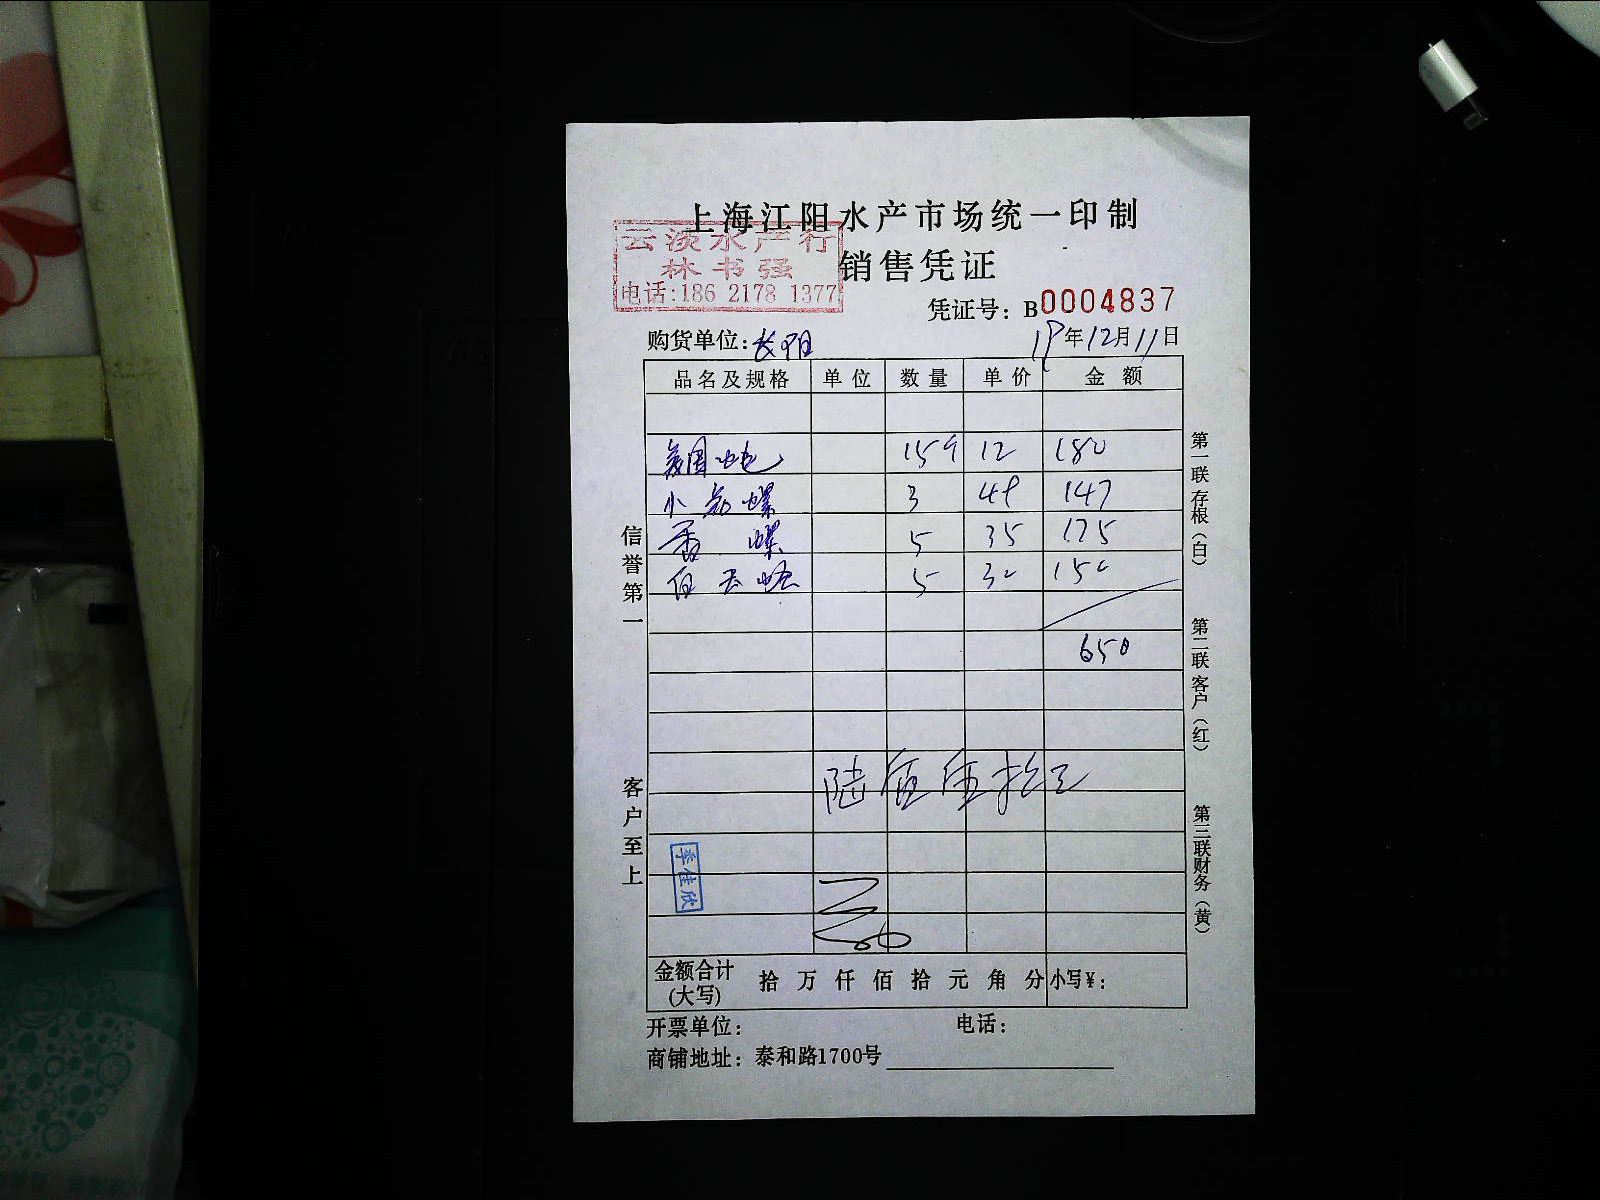 上海江阳水产市场统一印制
云淡水产行
林书强
电话:186 2178 1377
销售凭证
凭证号：B0004837
购货单位：长阳
19年12月11日
品名及规格 单位 数量 单价 金额
15 12 180
小 螺 3 49 147
香 螺 5 35 175
5 30 150
650
陆佰伍拾元
季佳欣
金额合计(大写) 拾 万 仟 佰 拾 元 角 分 小写¥：
开票单位： 电话：
商铺地址：泰和路1700号
信誉第一
客户至上
第一联存根（白）
第二联客户（红）
第三联财务（黄）